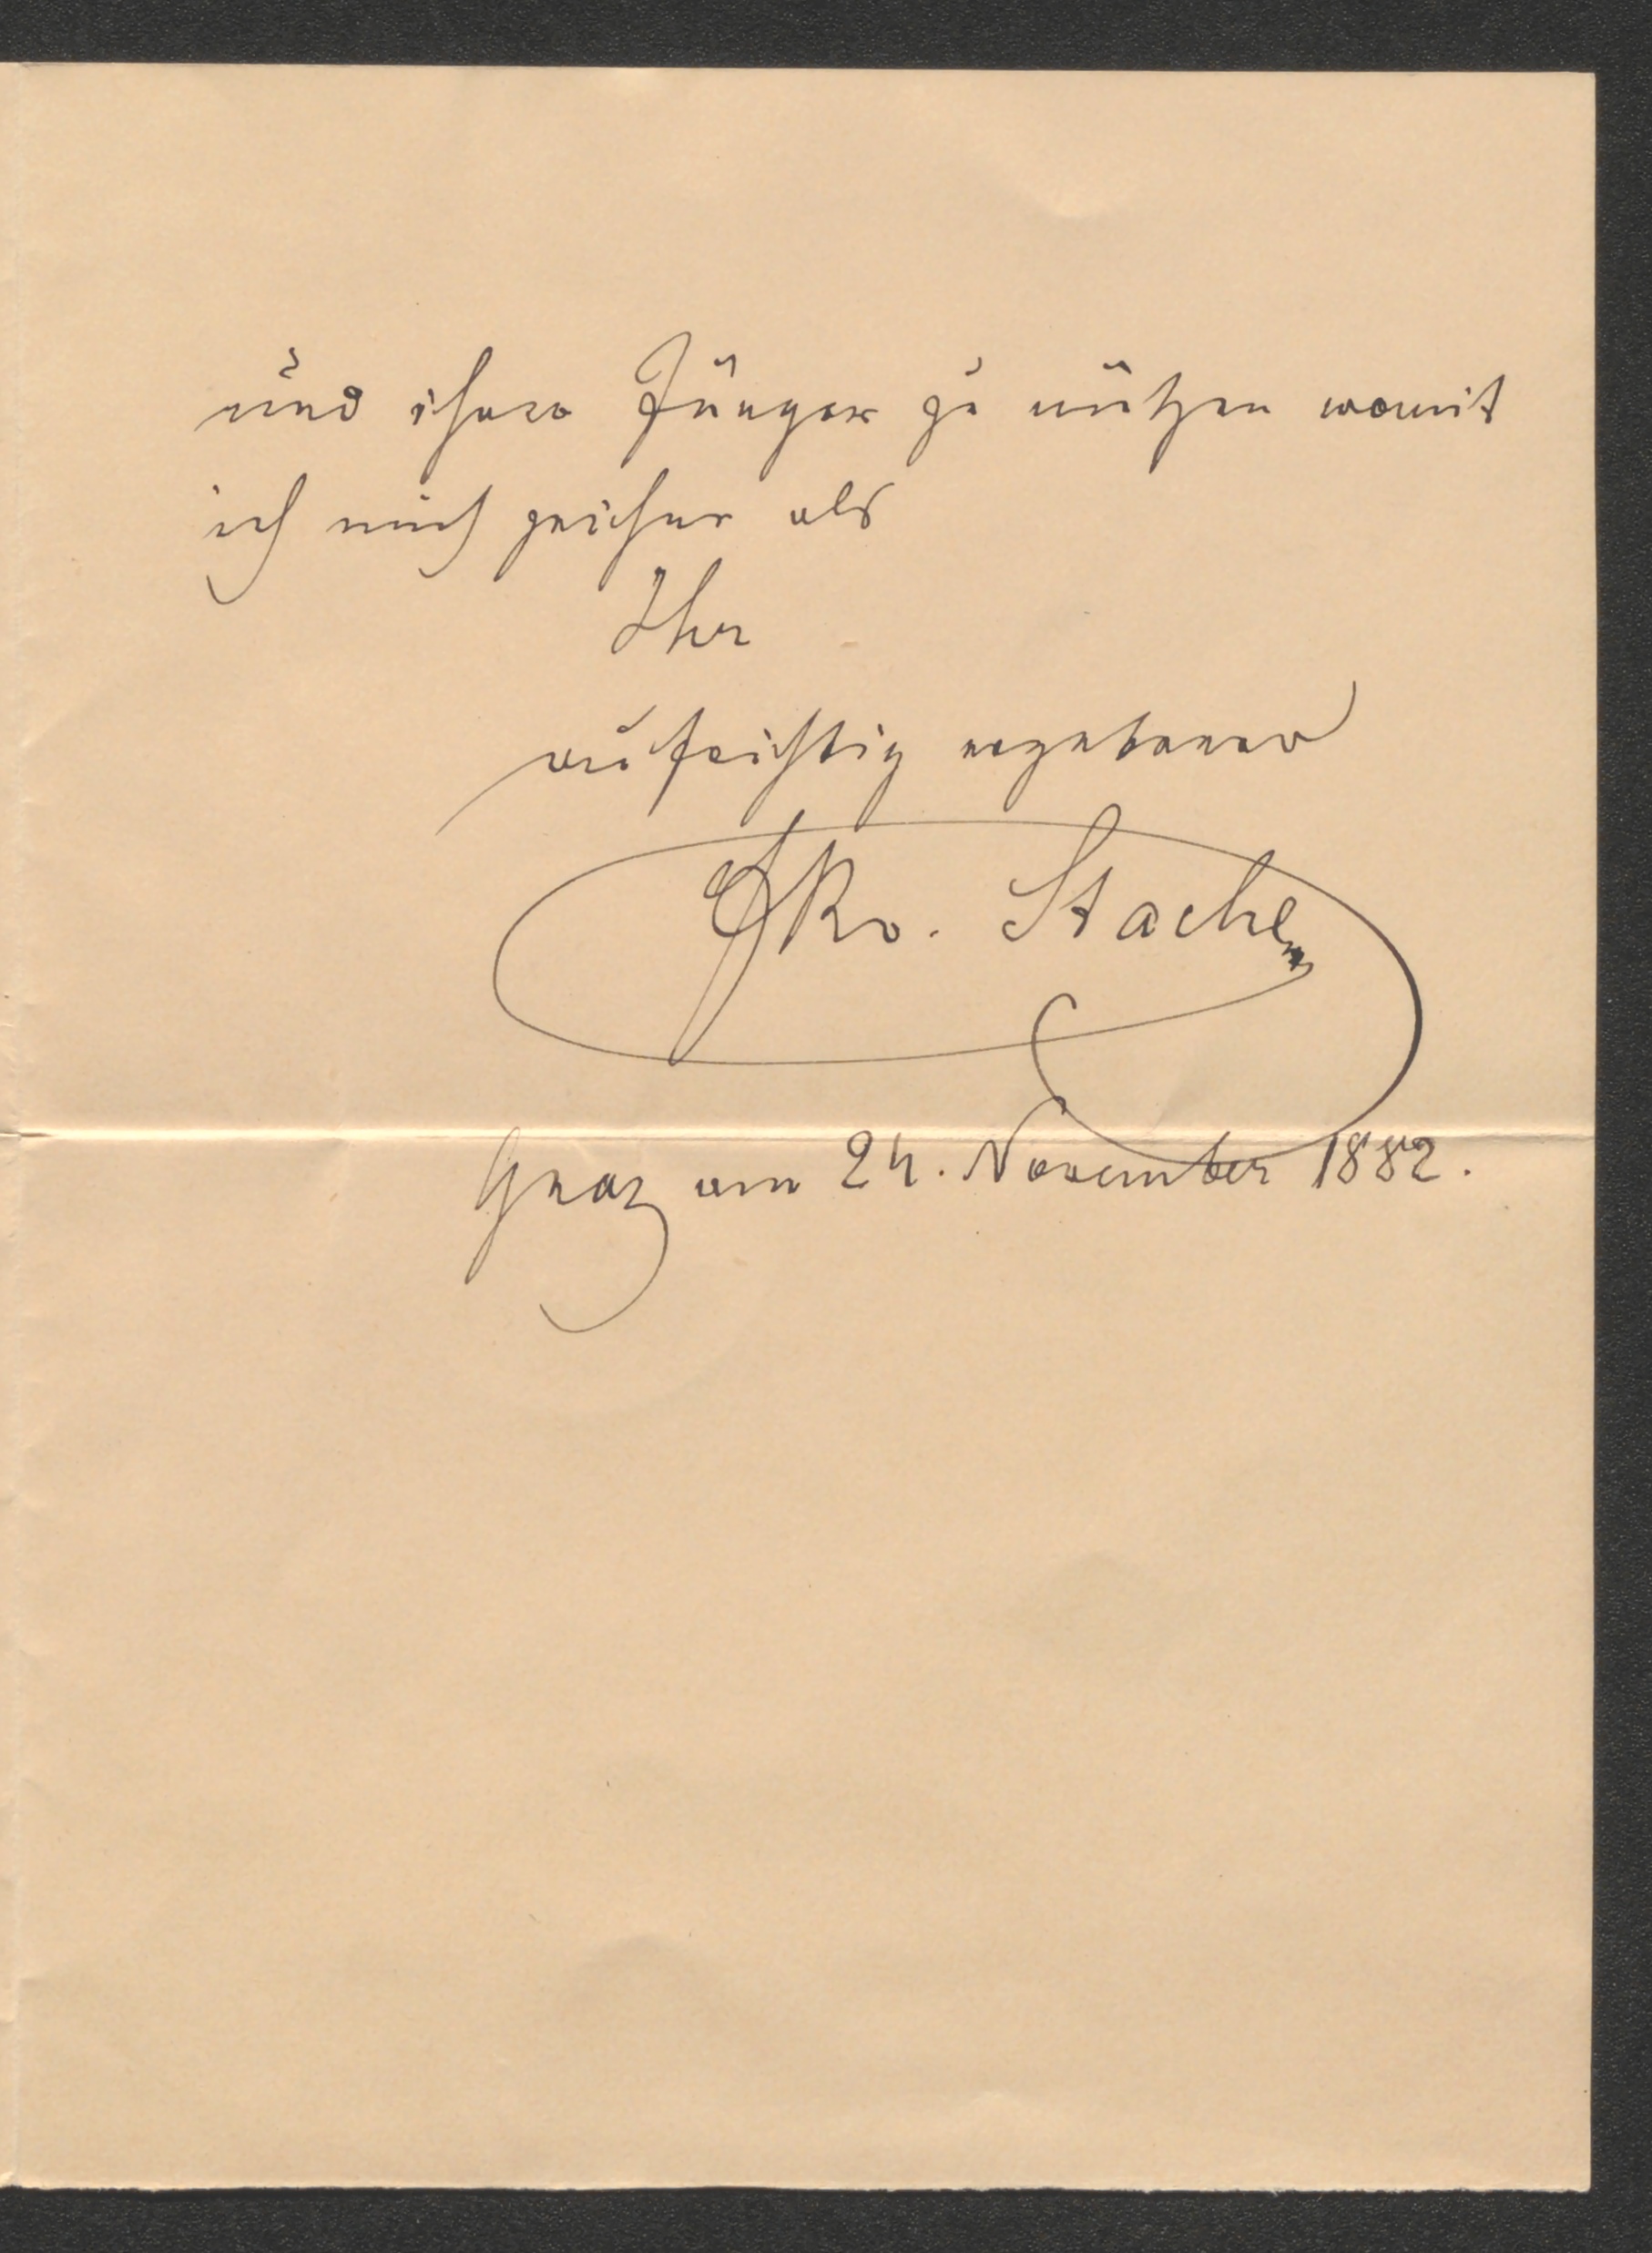 und ihren Jünger zu nützen womit
ich mich zeichne als
Ihr
aufrichtig ergebener
Stache
Graz am 24. November 1882.